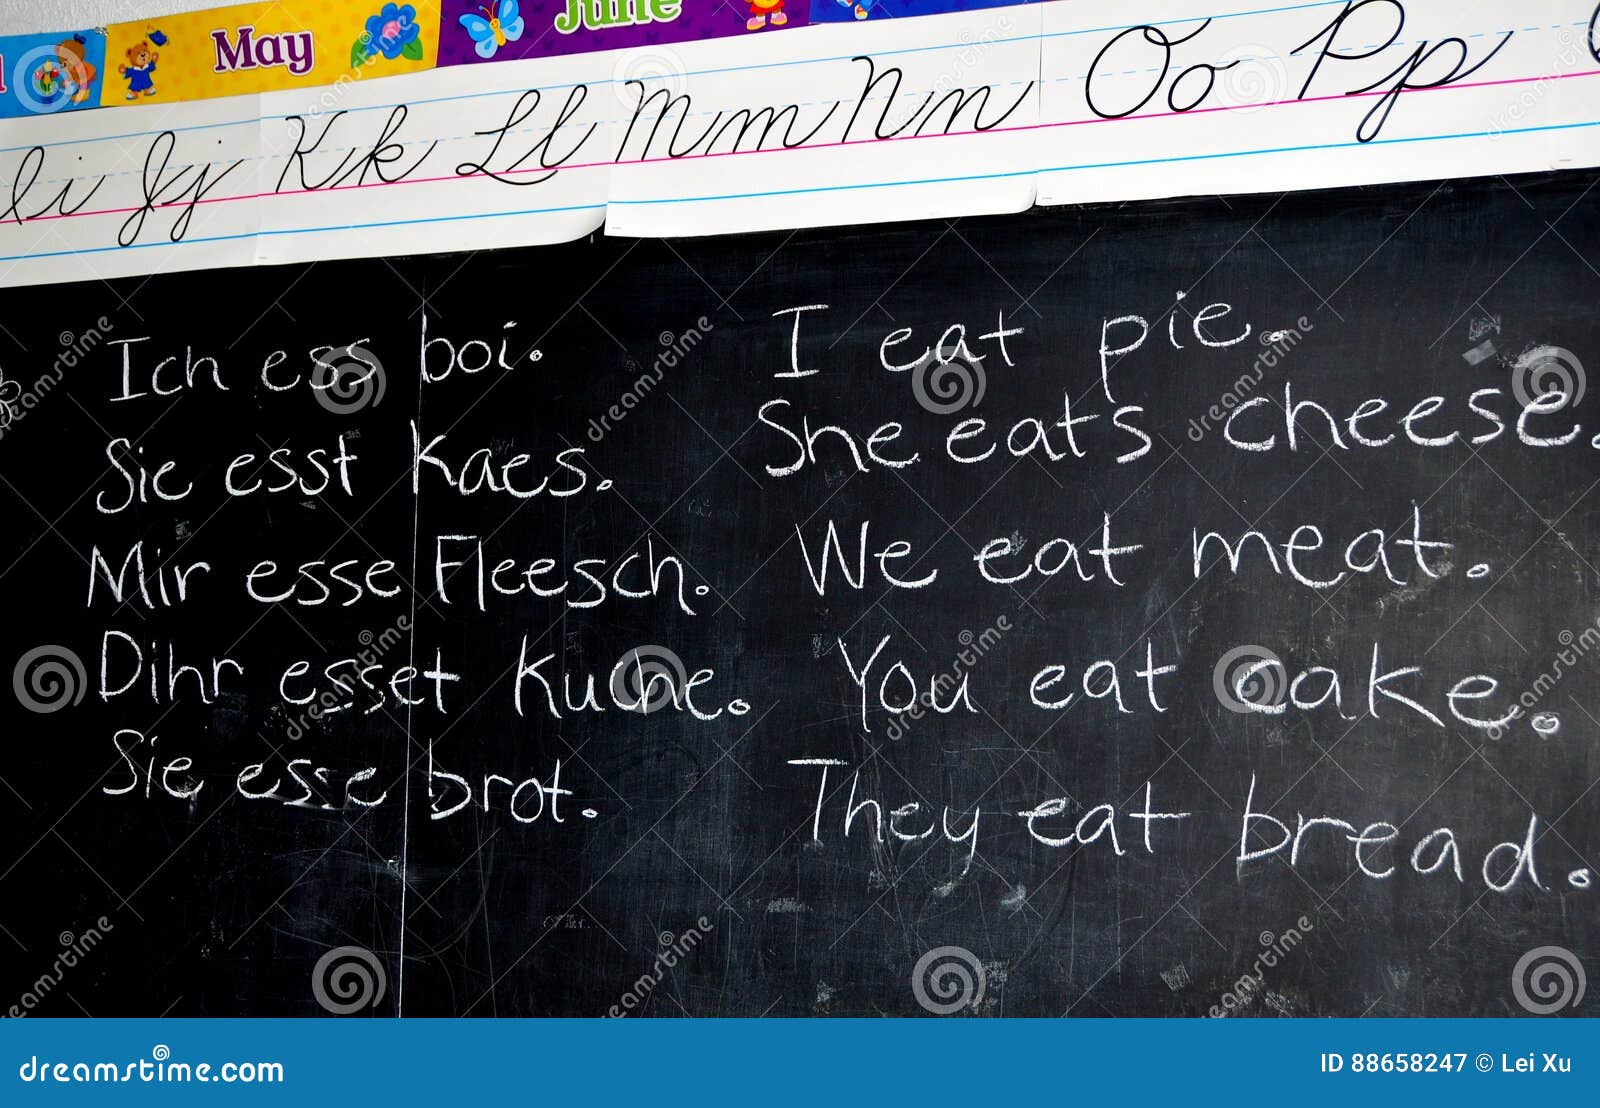 May June
i Jj Kk Ll Mm Nn Oo Pp
Ich ess boi. I eat pie.
Sie esst Kaes. She eats cheese.
Mir esse Fleesch. We eat meat.
Dihr esset Kuche. You eat cake.
Sie esse brot. They eat bread.
dreamstime.com
ID 88658247 © Lei Xu